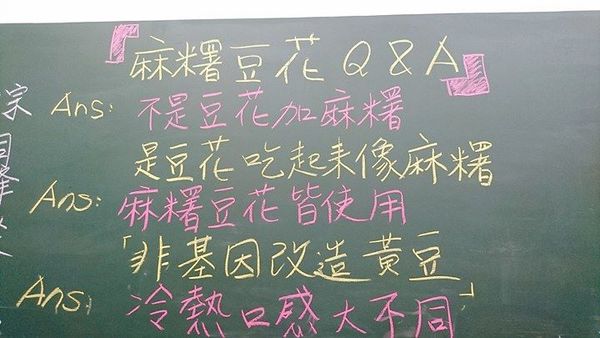 『麻糬豆花 Q&A』
Ans: 不是豆花加麻糬
是豆花吃起來像麻糬
Ans: 麻糬豆花皆使用
「非基因改造黃豆」
Ans: 冷熱口感大不同